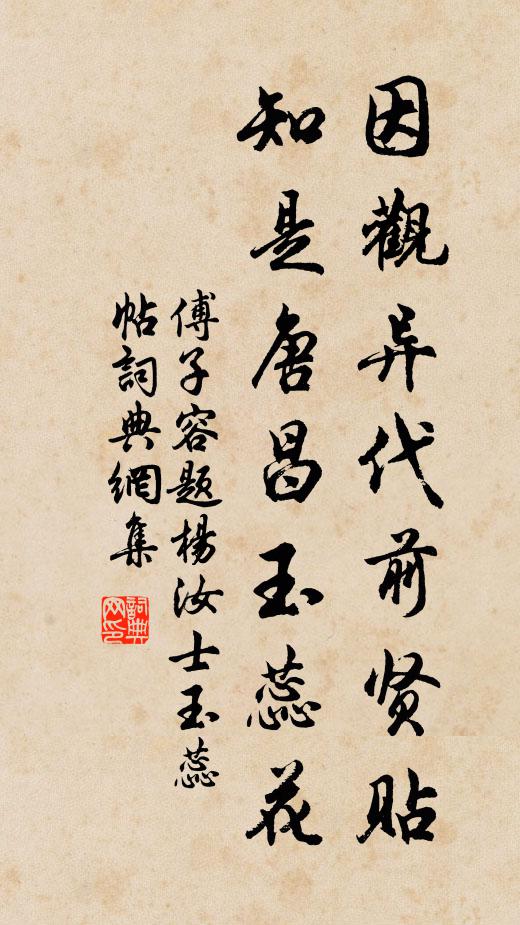 因觀异代前贤貼
知是唐昌玉蕊花
傅子容题楊汝士玉蕊
帖詞典網集
詞典网印